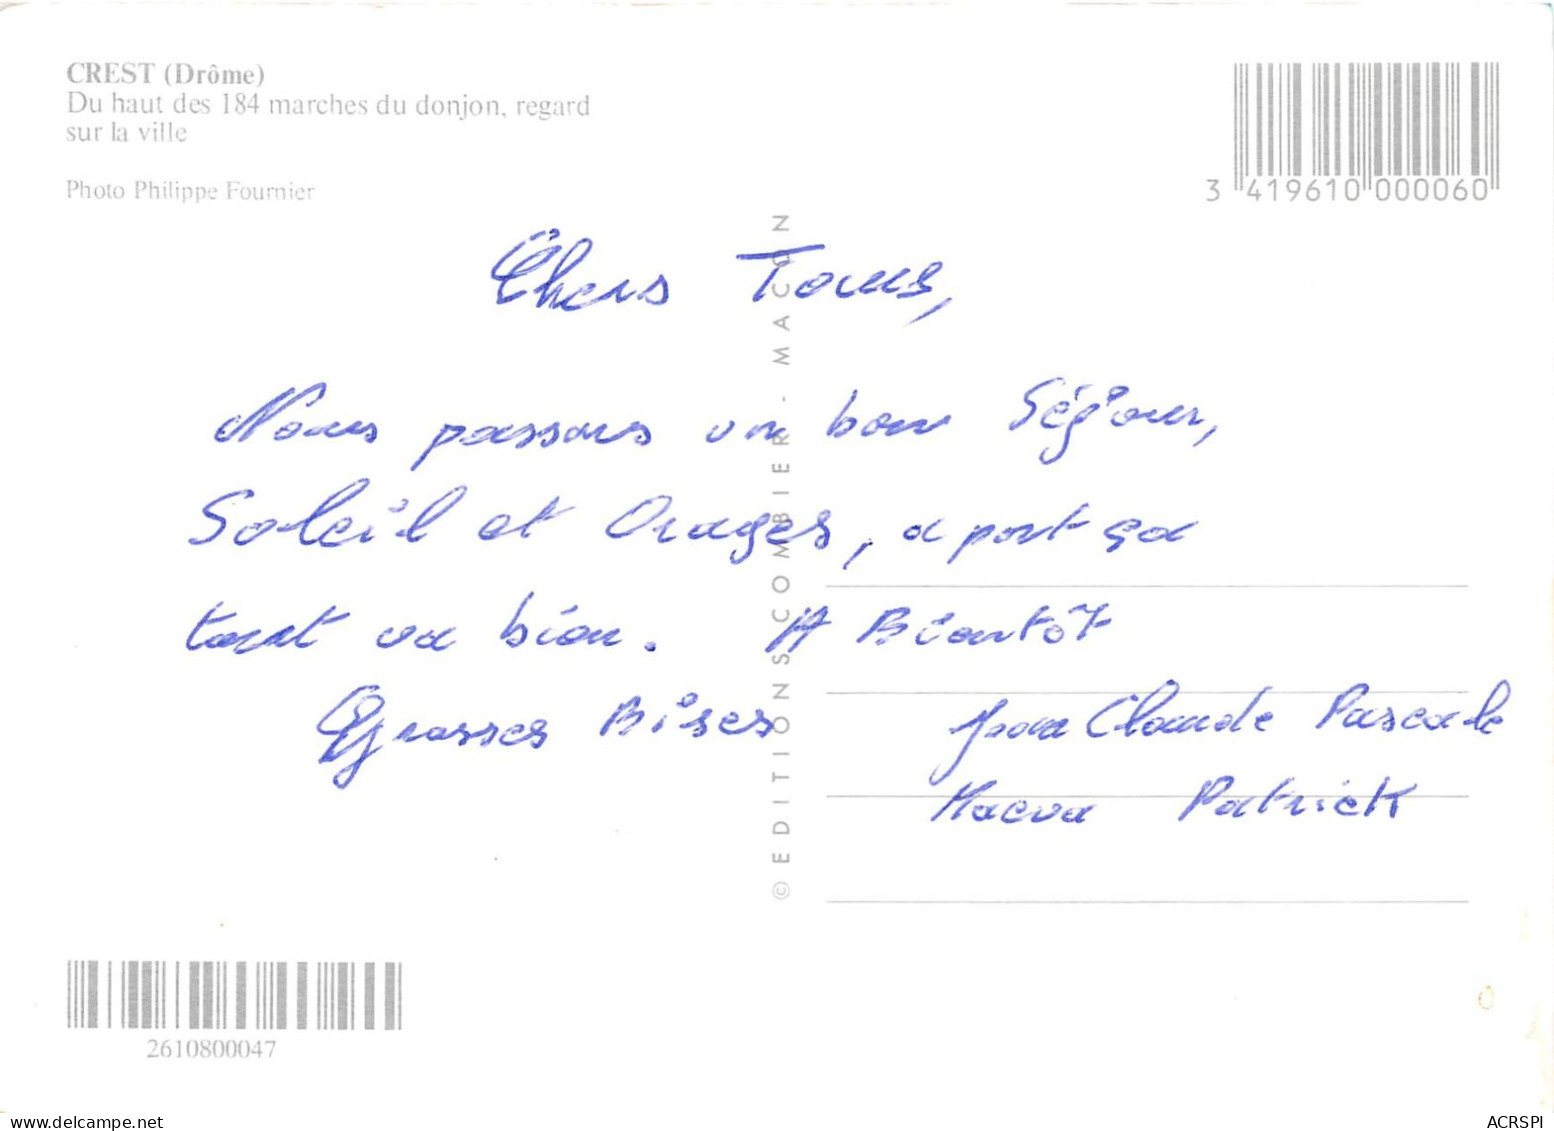 CREST (Drôme)
Du haut des 184 marches du donjon, regard
sur la ville
Photo Philippe Fournier
3 419610 000060
Chers Tous,
Nous passons un bon Séjour,
Soleil et Orages, a part ça
tout va bien. A Bientôt
Grosses Bises
Jean Claude Pascale
Maeva Patrick
© EDITIONS COMBIER - MACON
2610800047
delcampe.net
ACRSPI